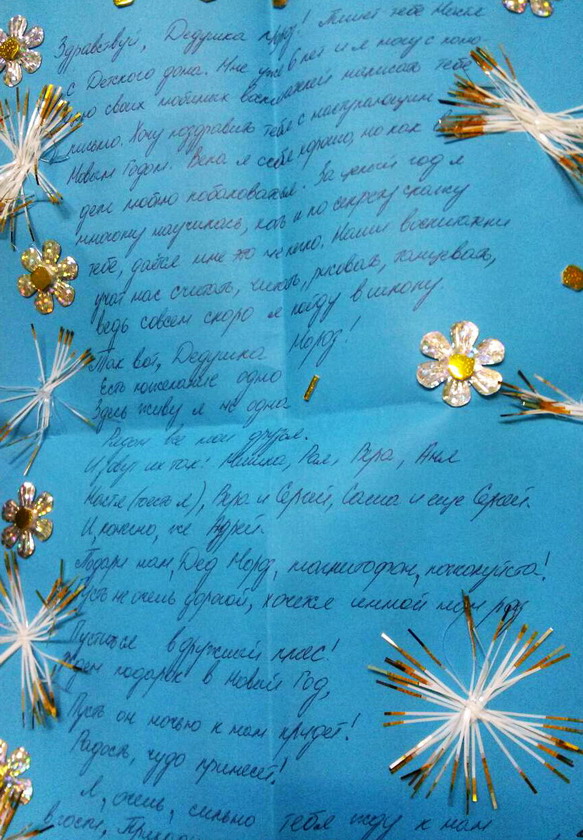 Здравствуй, Дедушка Мороз! Пишет тебе Настя
с Детского дома. Мне уже 6 лет и я могу с помо-
своих любимых воспитателей написать тебе
письмо. Хочу поздравить тебя с наступающим
Новым Годом. Вела я себя хорошо, но как
дети люблю побаловаться. За целый год я
многому научилась, хоть и по секрету скажу
тебе, даётся мне это не легко. Наши воспитатели
учат нас считать, читать, рисовать, танцевать,
ведь совсем скоро я пойду в школу.
Так вот, Дедушка Мороз!
Есть пожелание одно
Здесь живу я не одна
Рядом все мои друзья.
И зовут их так: Мишка, Рая, Вера, Аня
Настя (тоесть я), Вера и Сергей, Саша и еще Сергей.
И, конечно, же Андрей.
Подари нам, Дед Мороз, магнитофон, пожалуйста!
Пусть не очень дорогой, хочется зимой нам
Пуститься в дружный пляс!
Ждем подарок в Новый Год,
Пусть он ночью к нам придет!
Радость, чудо принесёт!
Я, очень, сильно тебя жду к нам
в гости,